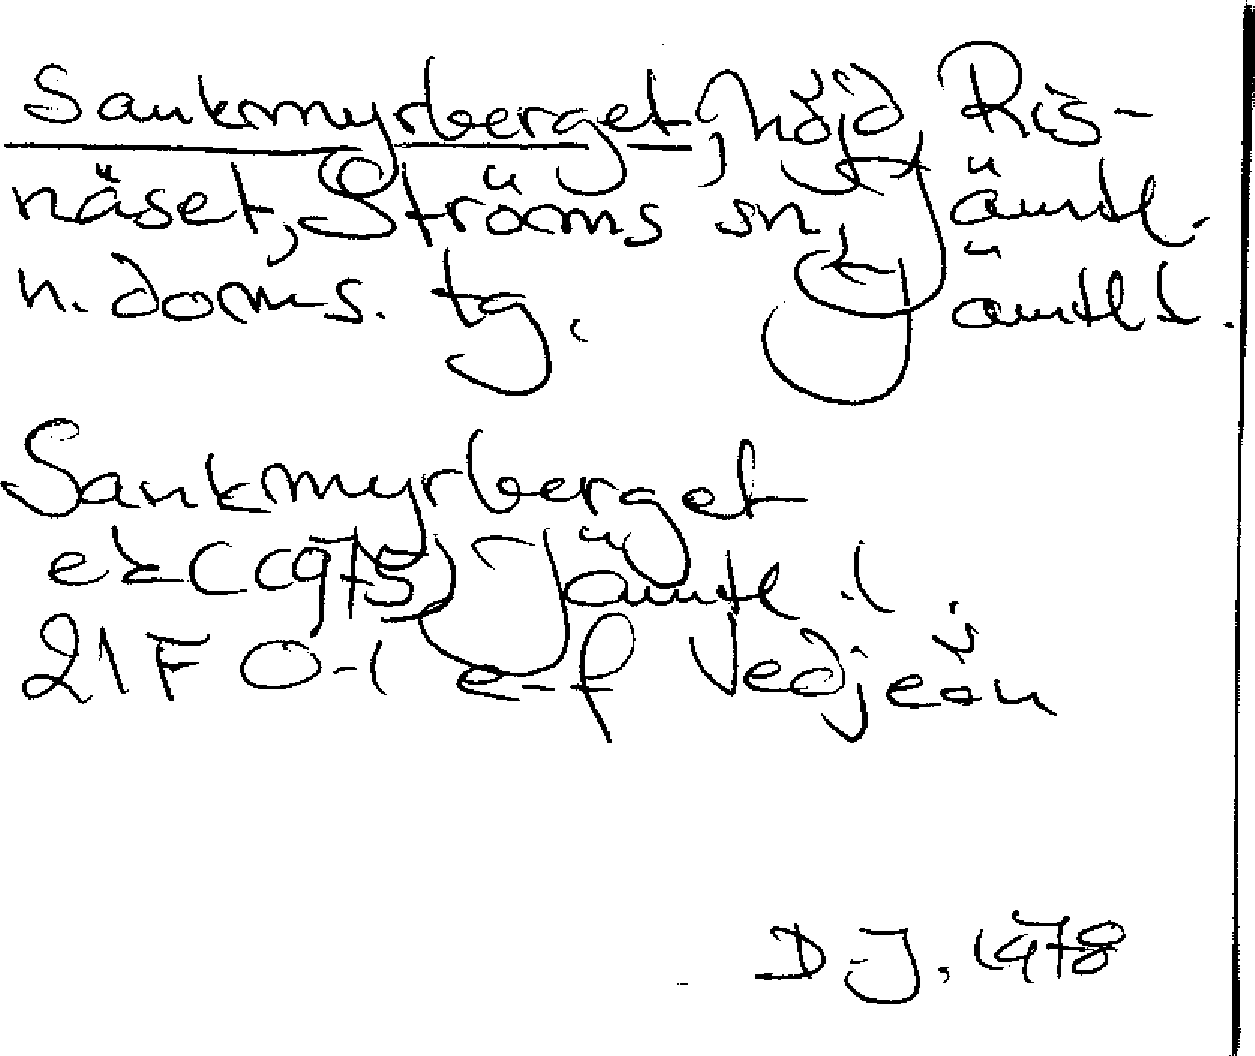 Sankmyrberget, höjd, Ris-
näset, Ströms sn, Jämtl.
n. doms. tg. Jämtl l.
Sankmyrberget
ek (1975) Jämtl. l.
21F 0-1 e-f Vedjeön
D.J. 1978